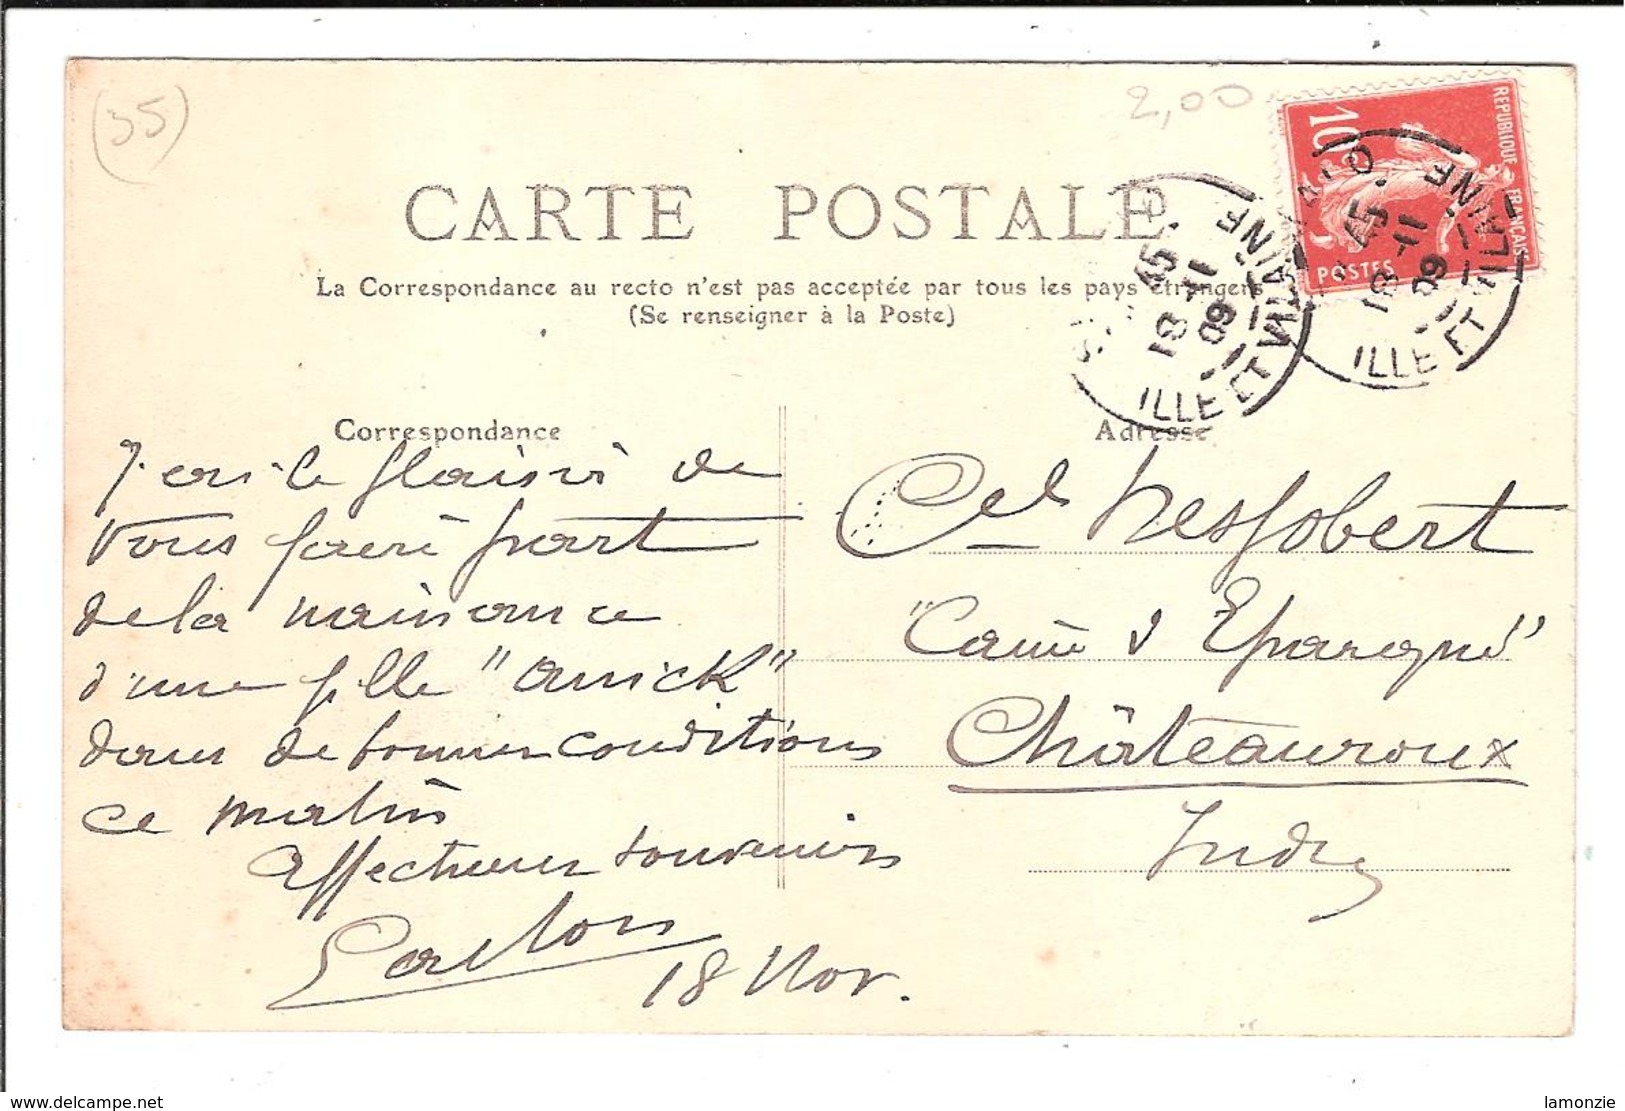 (35)
2,00
REPUBLIQUE FRANÇAISE
10
POSTES
CARTE POSTALE
La Correspondance au recto n'est pas acceptée par tous les pays étrangers
(Se renseigner à la Poste)
45
18-11
09
ILLE ET VILAINE
45
18-11
09
ILLE ET VILAINE
Correspondance
J'ai le plaisir de
vous faire part
de la naissance
d'une fille "Annick"
dans de bonnes conditions
ce matin
Affectueux souvenirs
Gaston
18 Nov.
Adresse
Cel
"Caisse d'Epargne"
Châteauroux
Indre
www.delcampe.net
lamonzie